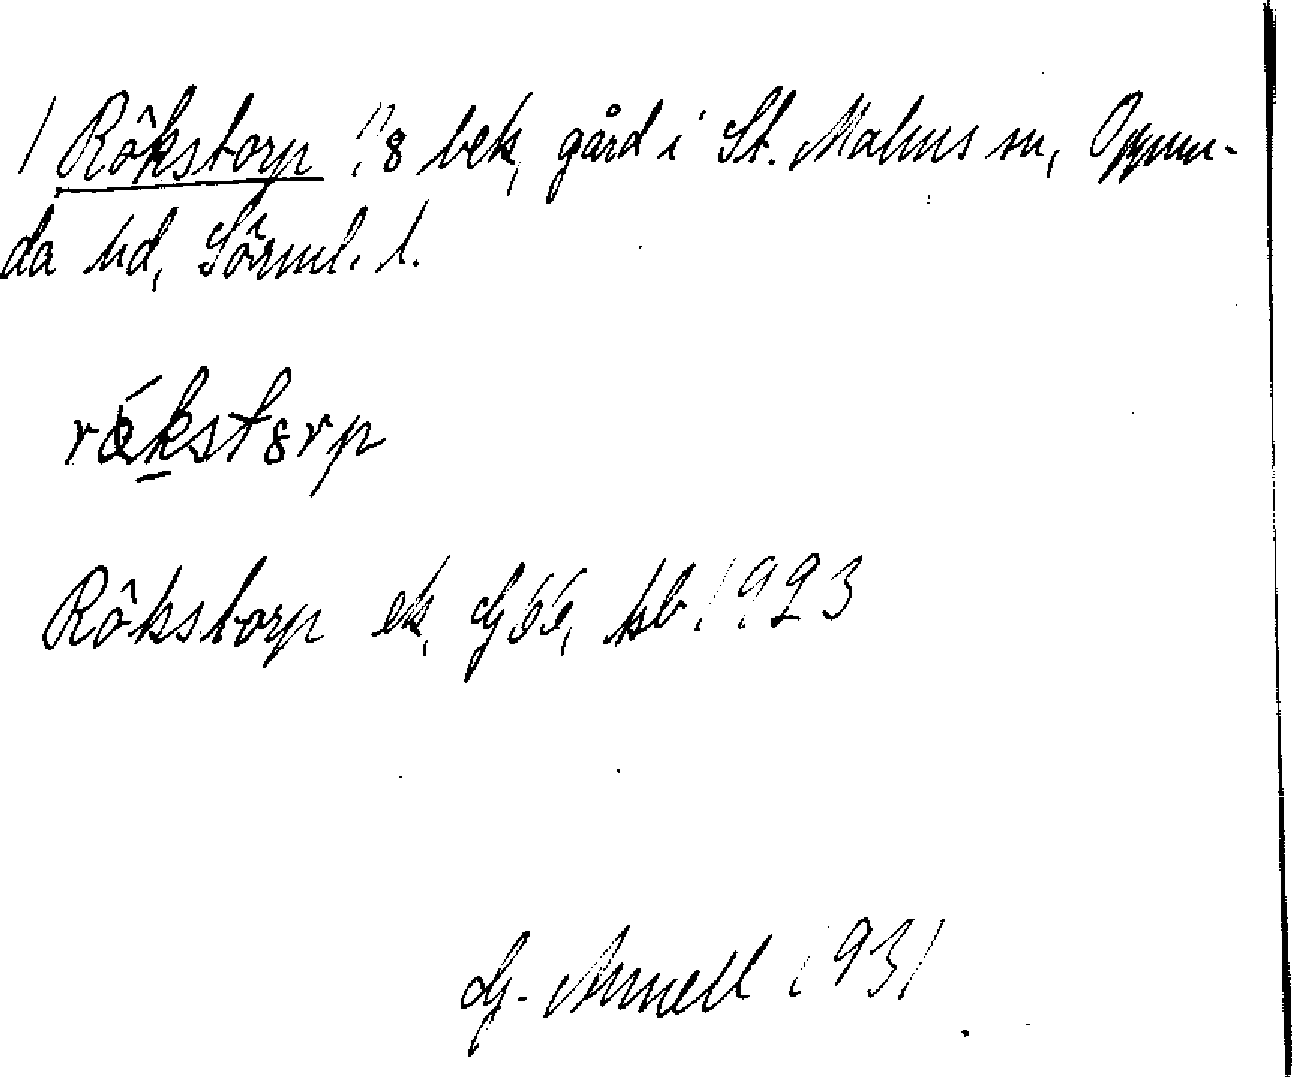 1 Rökstorp 1/8 bek, gård i St. Malms sn, Oppun-
da hd, Sörml. l.
rökstorp
Rökstorp ek, Gj66, kb. 1923
G. Arnell 1931